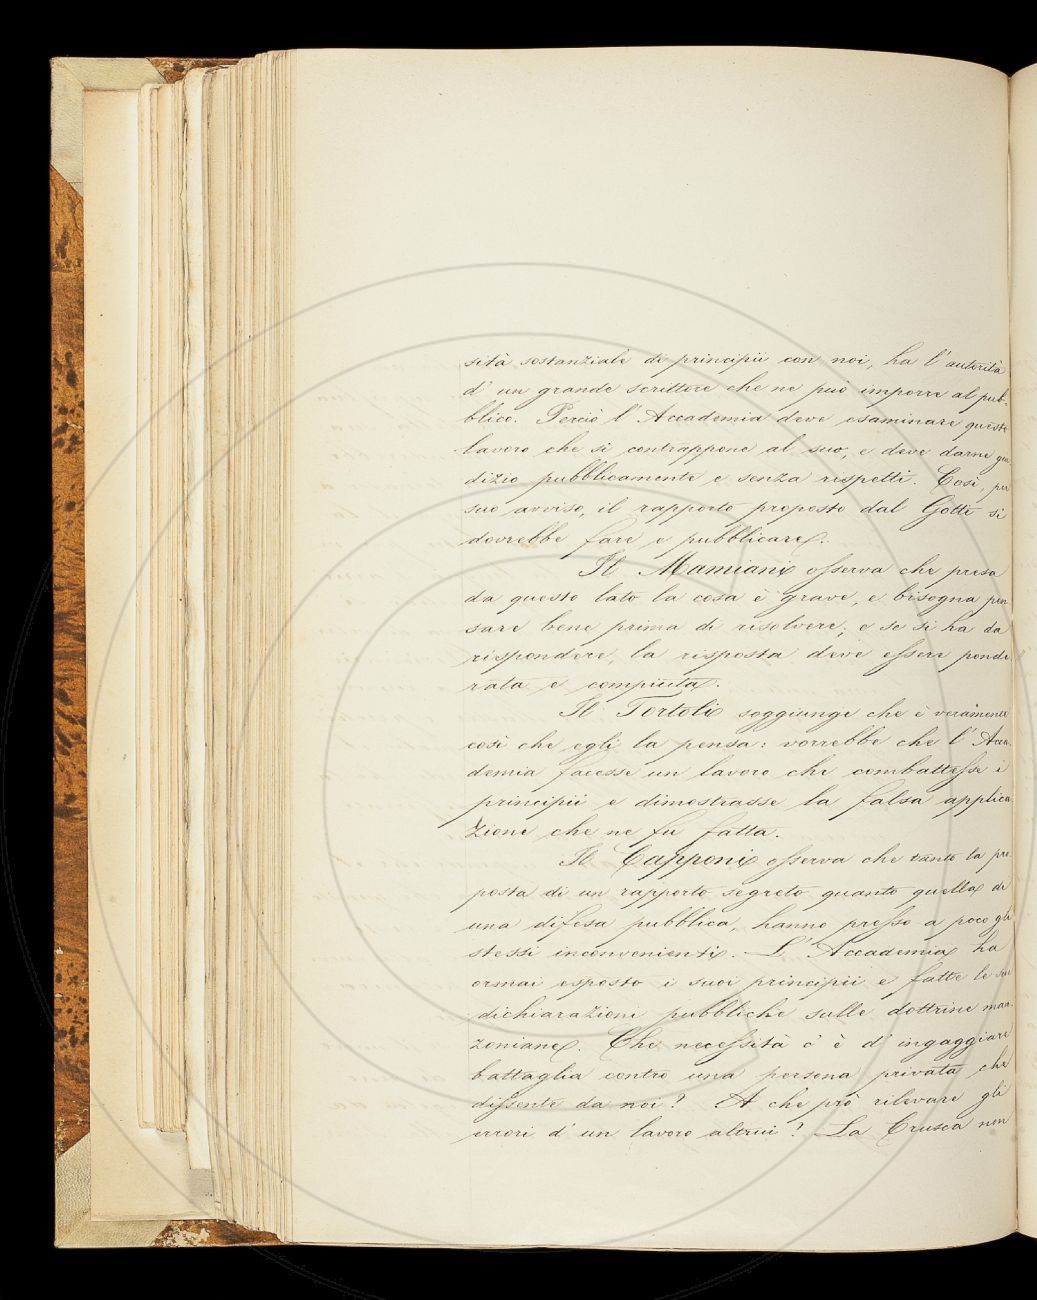 sità sostanziale di principii con noi, ha l'autorità
d'un grande scrittore che ne può imporre al pub-
blico. Perciò l'Accademia deve esaminare questo
lavoro che si contrappone al suo, e deve darne giu
dizio pubblicamente e senza rispetti. Così, per
suo avviso, il rapporto proposto dal Gotti si
dovrebbe fare e pubblicare.
Il Mamiani osserva che presa
da questo lato la cosa è grave, e bisogna pen
sare bene prima di risolvere; e se si ha da
rispondere, la risposta deve essere ponde
rata e compiuta.
Il Tortoli soggiunge che è veramente
così che egli la pensa: vorrebbe che l'Acca-
demia facesse un lavoro che combattesse i
principii e dimostrasse la falsa applica
zione che ne fu fatta.
Il Capponi osserva che tanto la pro
posta di un rapporto segreto quanto quella di
una difesa pubblica, hanno presso a poco gli
stessi inconvenienti. L'Accademia ha
ormai esposto i suoi principii e fatte le sue
dichiarazioni pubbliche sulle dottrine man
zoniane. Che necessità c'è d'ingaggiare
battaglia contro una persona privata che
dissente da noi? A che prò rilevare gli
errori d'un lavoro altrui? La Crusca non